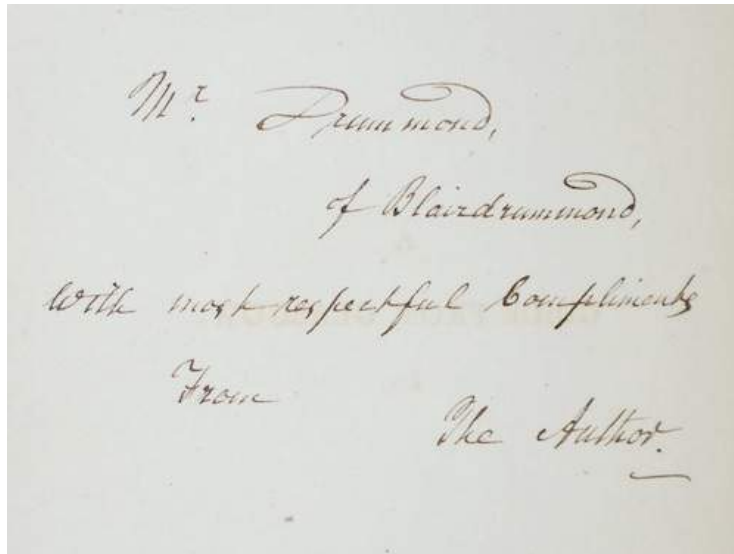 Mr. Drummond,
of Blairdrummond,
With most respectful Compliments
From
The Author.